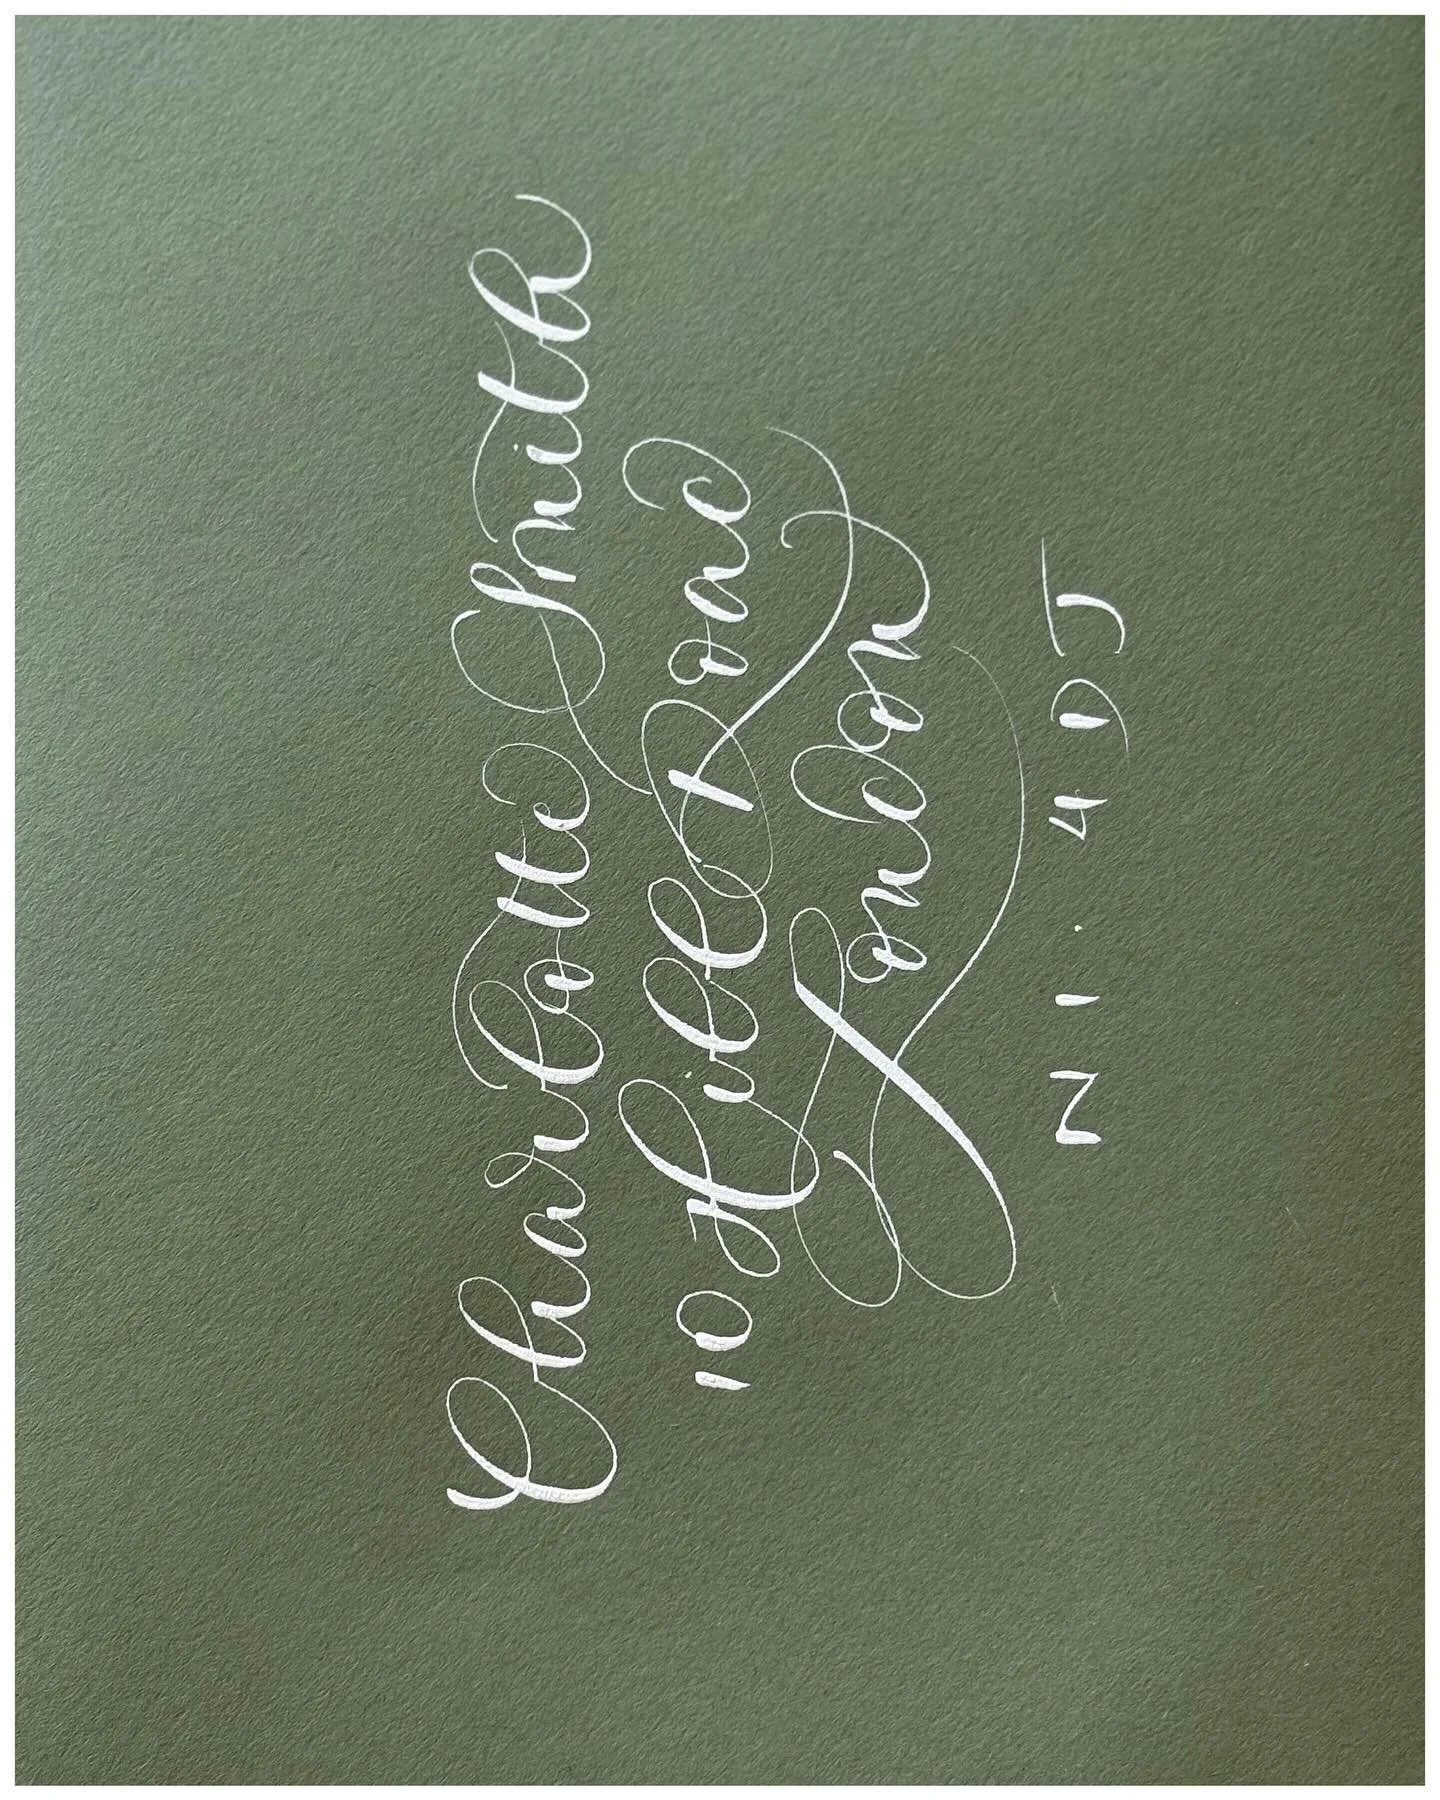 Charlotte Smith
10 Hill Road
London
N1. 4DJ